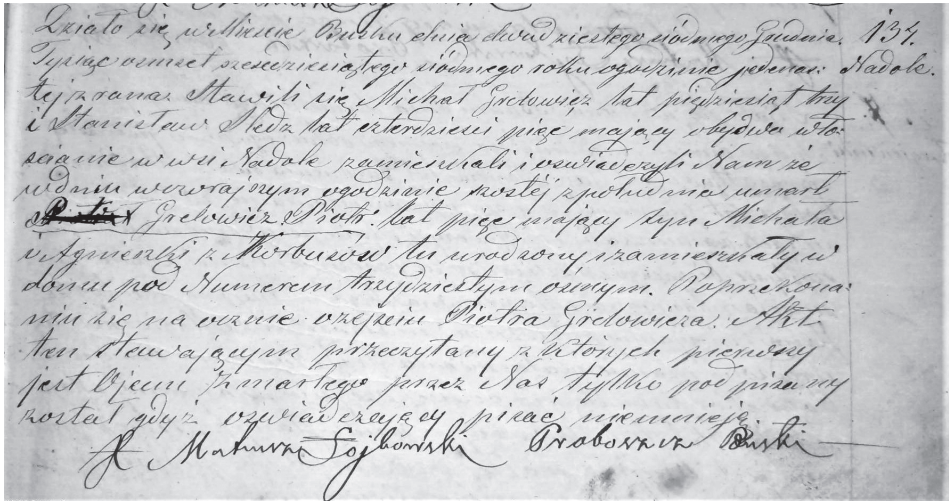 Działo się w Mieście Busku dnia dwudziestego siódmego Grudnia 134.
Tysiąc osmset szescdziesiątego siódmego roku ogodzinie jedenas: Nadole.
tej z rana. Stawili się Michał Grelowicz lat pięćdziesiąt trzy
i Stanisław Sledz lat czterdzieści pięc mający obydwa wło:
scianie w wsi Nadole zamieszkali i oswiadczyli Nam że
w dniu wczorajszym ogodzinie szostéj z południa umarł
Grelowicz Piotr. lat pięc mający syn Michała
i Agnieszki z Korbusów tu urodzony i zamieszkały w
domu pod Numerem trzydziestym ósmym. Poprzekona:
niu się na ocznie o zejsciu Piotra Grelowicza. Akt
ten stawającym przeczytany z których pierwszy
jest Ojcem Zmarłego przez Nas tylko podpisany
został gdyż oswiadczający pisać nieumieją.
X Mateusz Sojkowski Proboszcz Buski